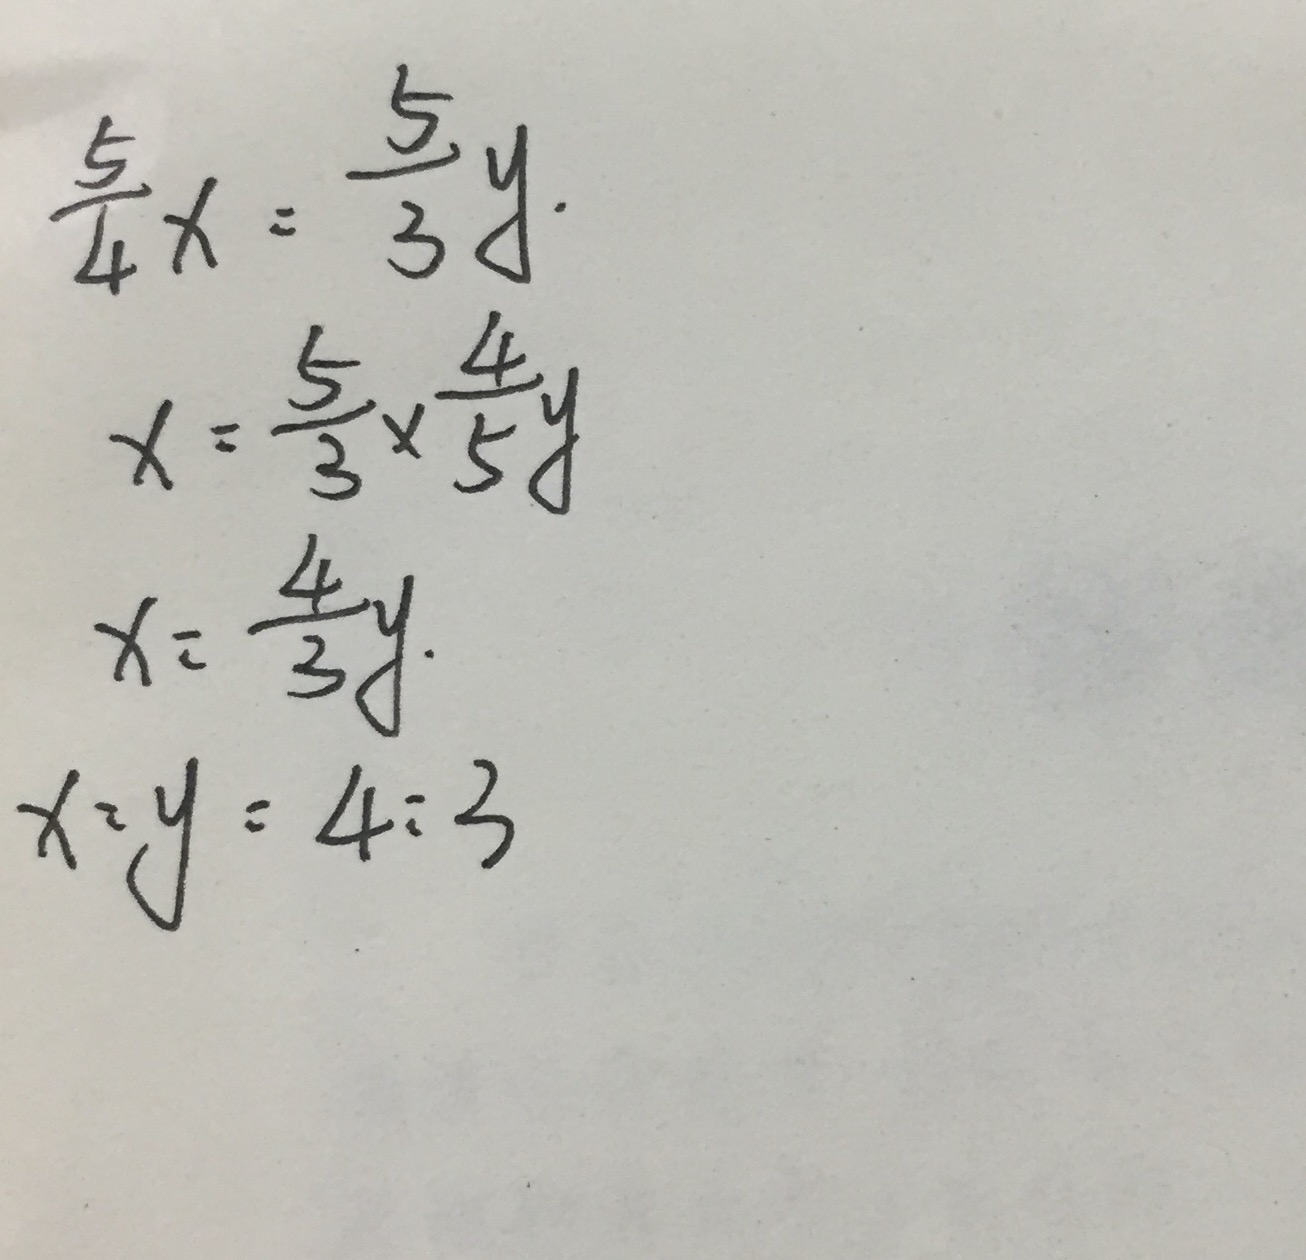 5/4 x = 5/3 y.
x = 5/3 × 4/5 y
x = 4/3 y.
x : y = 4 : 3